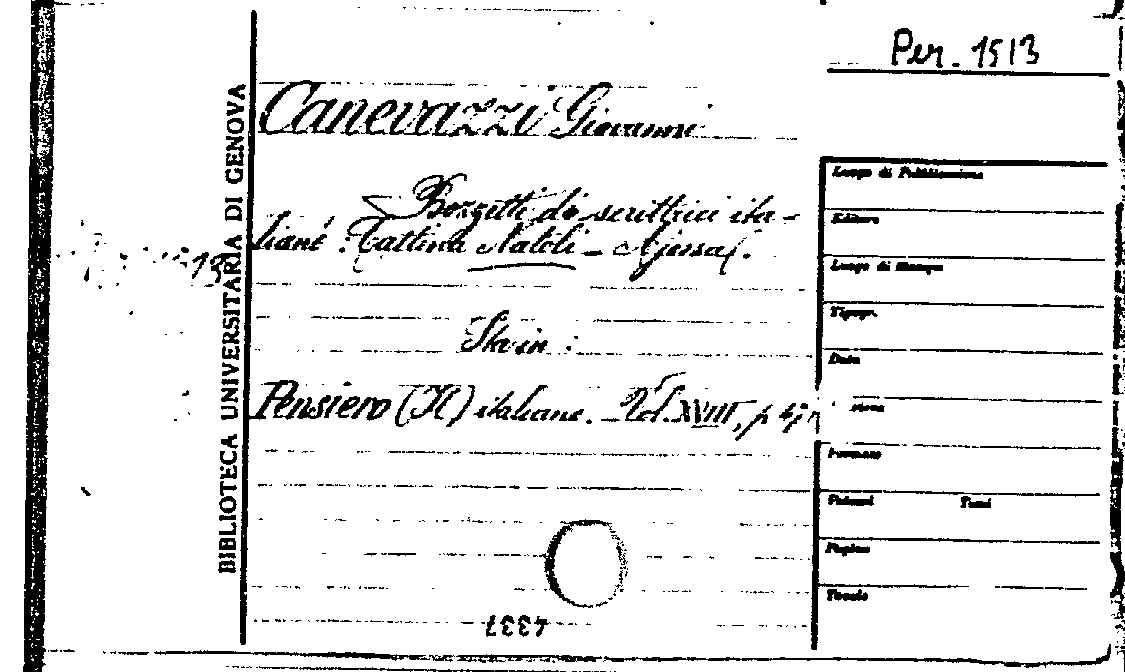 Per. 1513
Canevazzi Giovanni
Bozzetti di scrittrici ita-
liane : Cattina Natoli - Ajossa.
Sta in :
Pensiero (Il) italiano. Vol. XVIII, p.
BIBLIOTECA UNIVERSITARIA DI GENOVA
Luogo di Pubblicazione
Editore
Luogo di Stampa
Tipogr.
Data
Formato
Volumi Tomi
Pagine
Tavole
4337